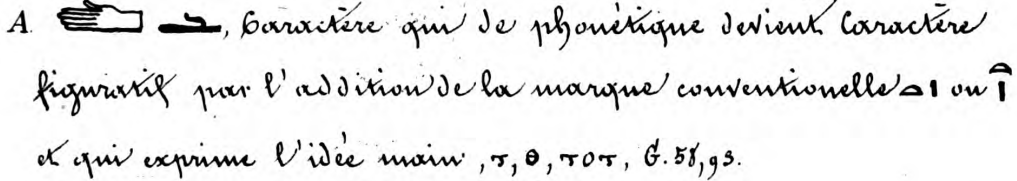 A. 𓂧 𓂧, Caractère qui de phonétique devient Caractère
figuratif par l'addition de la marque conventionelle 𓏏𓏤 ou 𓏏𓏤
et qui exprime l'idée main, ⲧ, ⲑ, ⲧⲟⲧ, G. 58, 93.